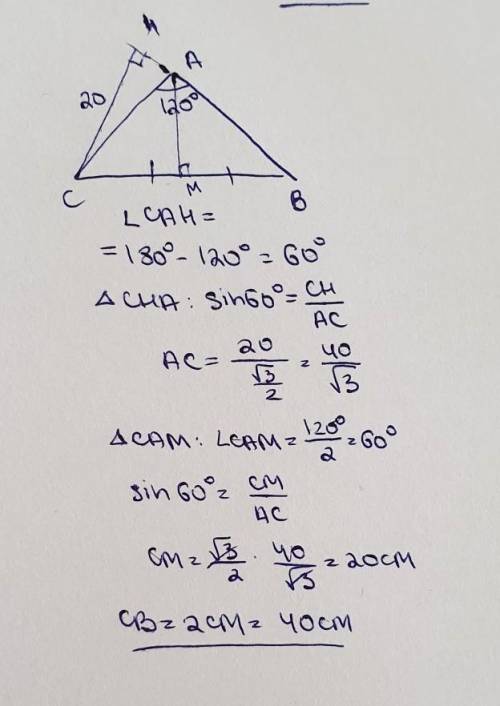 H
A
20
120°
C
M
B
∠CAH =
= 180° - 120° = 60°
△CHA: sin60° = CH/AC
AC = 20/(√3/2) = 40/√3
△CAM: ∠CAM = 120°/2 = 60°
sin 60° = CM/AC
CM = √3/2 · 40/√3 = 20cm
CB = 2CM = 40cm